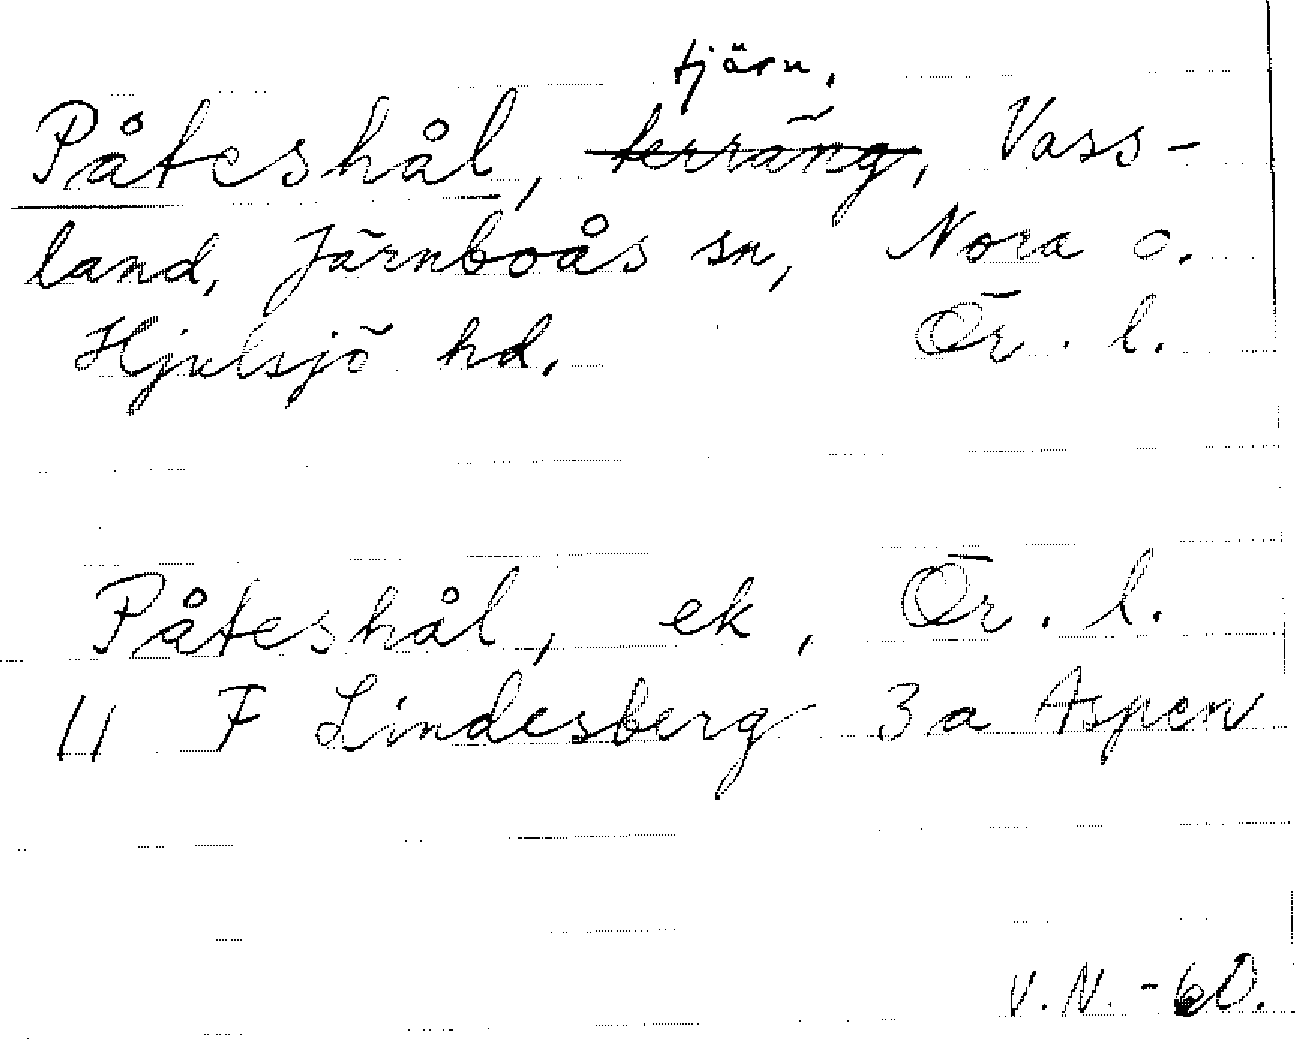 tjärn,
Påteshål, terräng, Vass-
land, Järnboås sn, Nora o.
Hjulsjö hd. Ör. l.
Påteshål, ek, Ör. l.
11 F Lindesberg 3a Aspen
V. N. -60.